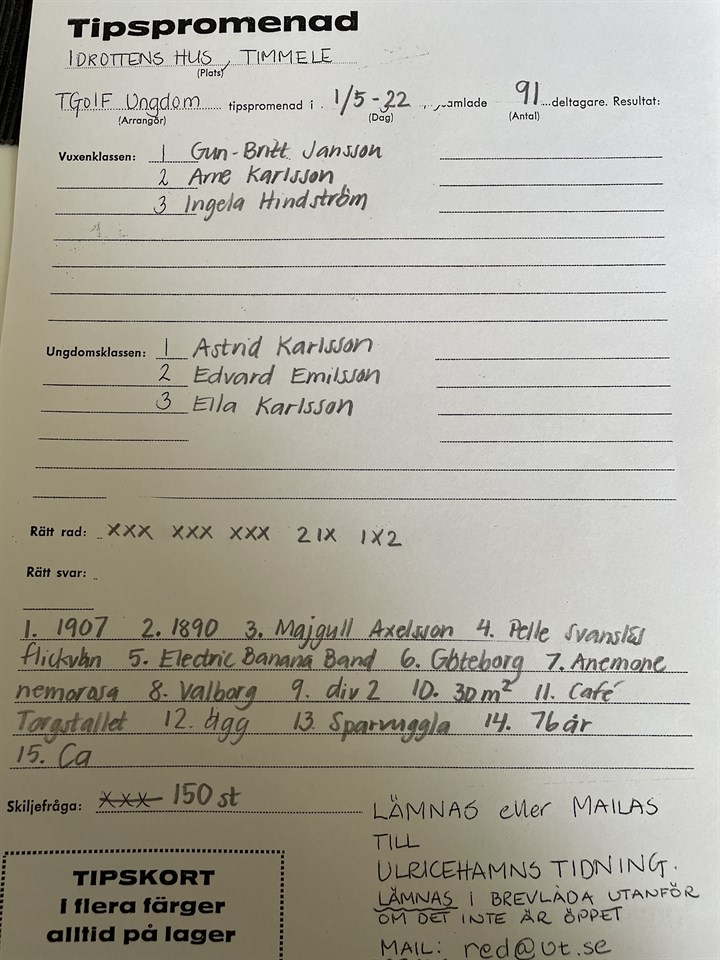 Tipspromenad
IDROTTENS HUS, TIMMELE
(Plats)
TGOIF Ungdom tipspromenad i 1/5-22, samlade 91 deltagare. Resultat:
(Arrangör) (Dag) (Antal)
Vuxenklassen: 1 Gun-Britt Jansson
2 Arne Karlsson
3 Ingela Hindström
Ungdomsklassen: 1 Astrid Karlsson
2 Edvard Emilsson
3 Ella Karlsson
Rätt rad: XXX XXX XXX 21X 1X2
Rätt svar:
1. 1907 2. 1890 3. Majgull Axelsson 4. Pelle Svanslös
flickvän 5. Electric Banana Band 6. Göteborg 7. Anemone
nemorosa 8. Valborg 9. div 2 10. 30 m² 11. Café
Torgstallet 12. Ägg 13. Sparvuggla 14. 76 år
15. Ca
Skiljefråga: XXX 150 st
LÄMNAS eller MAILAS
TILL
ULRICEHAMNS TIDNING.
LÄMNAS I BREVLÅDA UTANFÖR
OM DET INTE ÄR ÖPPET
MAIL: red@ut.se
TIPSKORT
i flera färger
alltid på lager